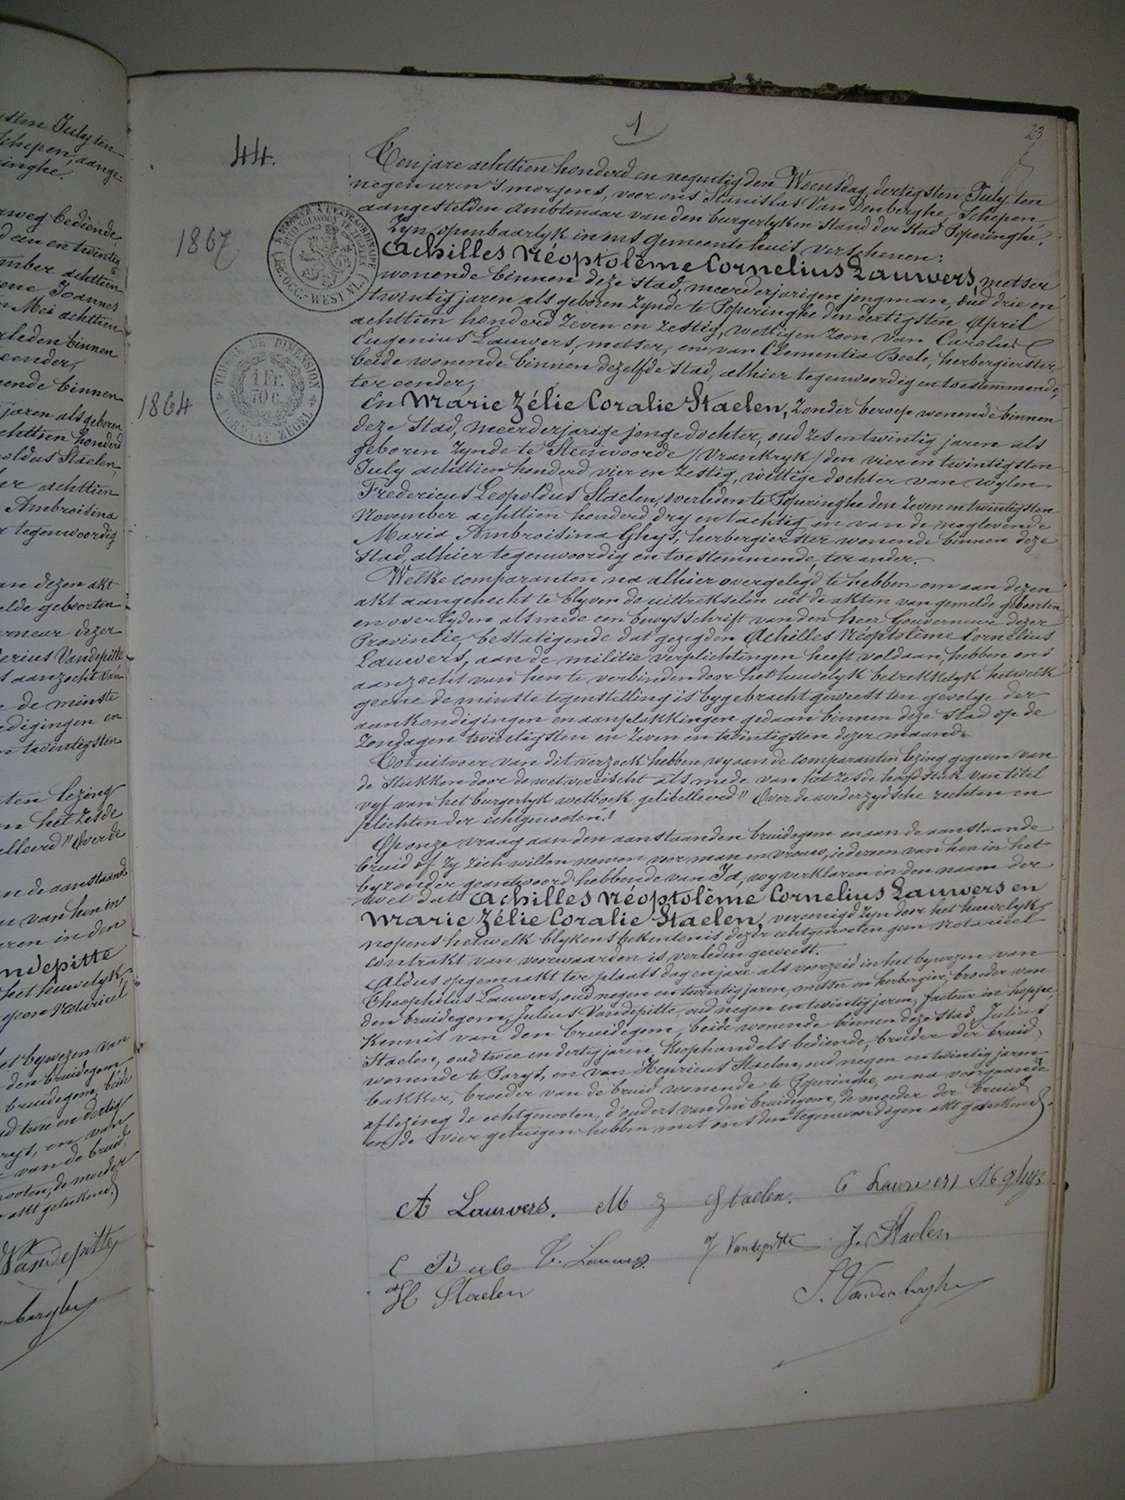 1
23
44.
Ten jare achttien honderd en negentig den Woensdag, dertigsten July ten
negen uren 's morgens, voor ons Stanislas Van den berghe, Schepen
aangestelden Ambtenaar van den burgerlyken Stand der Stad Poperinghe,
Zyn openbaarlyk in ons gemeente huis verschenen:
1867
Achilles Néoptolème Cornelius Lauwers, metser
wonende binnen deze stad, meerderjarigen jongman, oud drie en
twintig jaren als geboren zynde te Poperinghe den dertigsten April
achttien honderd zeven en zestig, wettigen zoon van Carolus
Eugenius Lauwers, metser, en van Clementia Beele, herbergierster
beide wonende binnen dezelfde stad, alhier tegenwoordig en toestemmende,
ter eender,
TIMBRE DE DIMENSION
1 Fr.
70 c.
FORMAAT ZEGEL
1864
En Marie Zélie Coralie Staelen, zonder beroep wenende binnen
deze stad, meerderjarige jonge dochter, oud zes en twintig jaren als
geboren zynde te Steenvoorde /Vrankryk/ den vier en twintigsten
July achttien honderd vier en zestig, wettige dochter van wylen
Fredericus Leopoldus Staelen, overleden te Poperinghe den zeven en twintigsten
November achttien honderd dry en tachtig, en van de nog levende
Maria Ambroisina Ghys, herbergierster wonende binnen deze
stad, alhier tegenwoordig en toestemmende, ter ander.
Welke comparanten na alhier overgelegd te hebben om aan dezen
akt aangehecht te blyven de uittrekselen uit de akten van gemelde geboorten
en overlyden alsmede een bewysschrift van den heer Gouverneur dezer
Provincie, bestatigende dat gezegden Achilles Néoptolème Cornelius
Lauwers, aan de militie verplichtingen heeft voldaan, hebben ons
aanzocht van hen te verbinden door het huwelyk betrekkelyk hetwelk
geene de minste tegenstelling is bygebracht geweest ten gevolge der
aankondigingen en aanplakkingen gedaan binnen deze stad op de
Zondagen twintigsten en zeven en twintigsten dezer maand.
Tot uitvoer van dit verzoek hebben wy aan de comparanten lezing gegeven van
de stukken door de wet vereischt als mede van het zesde hoofdstuk van titel
vyf van het burgerlyk wetboek gelibelleerd "Over de wederzydsche rechten en
plichten der echtgenooten."
Op onze vraag aan den aanstaanden bruidegom en aan de aanstaande
bruid of zy zich willen nemen voor man en vrouw, iedereen van hen in het
byzonder geantwoord hebbende van Ja, wy verklaren in den naam der
wet dat Achilles Néoptolème Cornelius Lauwers en
Marie Zélie Coralie Staelen, vereenigd zyn door het huwelyk,
nopens hetwelk blykens bekentenis dezer echtgenooten geen Notarieel
contrakt van voorwaarden is verleden geweest.
Aldus opgemaakt ter plaats dag en jare als voorzeid in het bywezen van
Theophilus Lauwers, oud negen en twintig jaren, metser en herbergier, broeder van
den bruidegom, Julius Vandepitte, oud negen en twintig jaren, facteur in hoppe,
kennis van den bruidegom, beide wonende binnen deze stad, Julius
Staelen, oud twee en dertig jaren, Koophandels bediende, broeder der bruid,
wonende te Parys, en van Henricus Staelen, oud negen en twintig jaren
bakker, broeder van de bruid wonende te Poperinghe, en na voorgaande
aflezing de echtgenooten, d'ouders van den bruidegom, de moeder der bruid
en de vier getuigen hebben met ons den tegenwoordigen akt geteekend.
A Lauwers. M Z Staelen. C Lauwers M Ghys
C Beele T. Lauwers J Vandepitte J. Staelen
H Staelen S. Vandenberghe